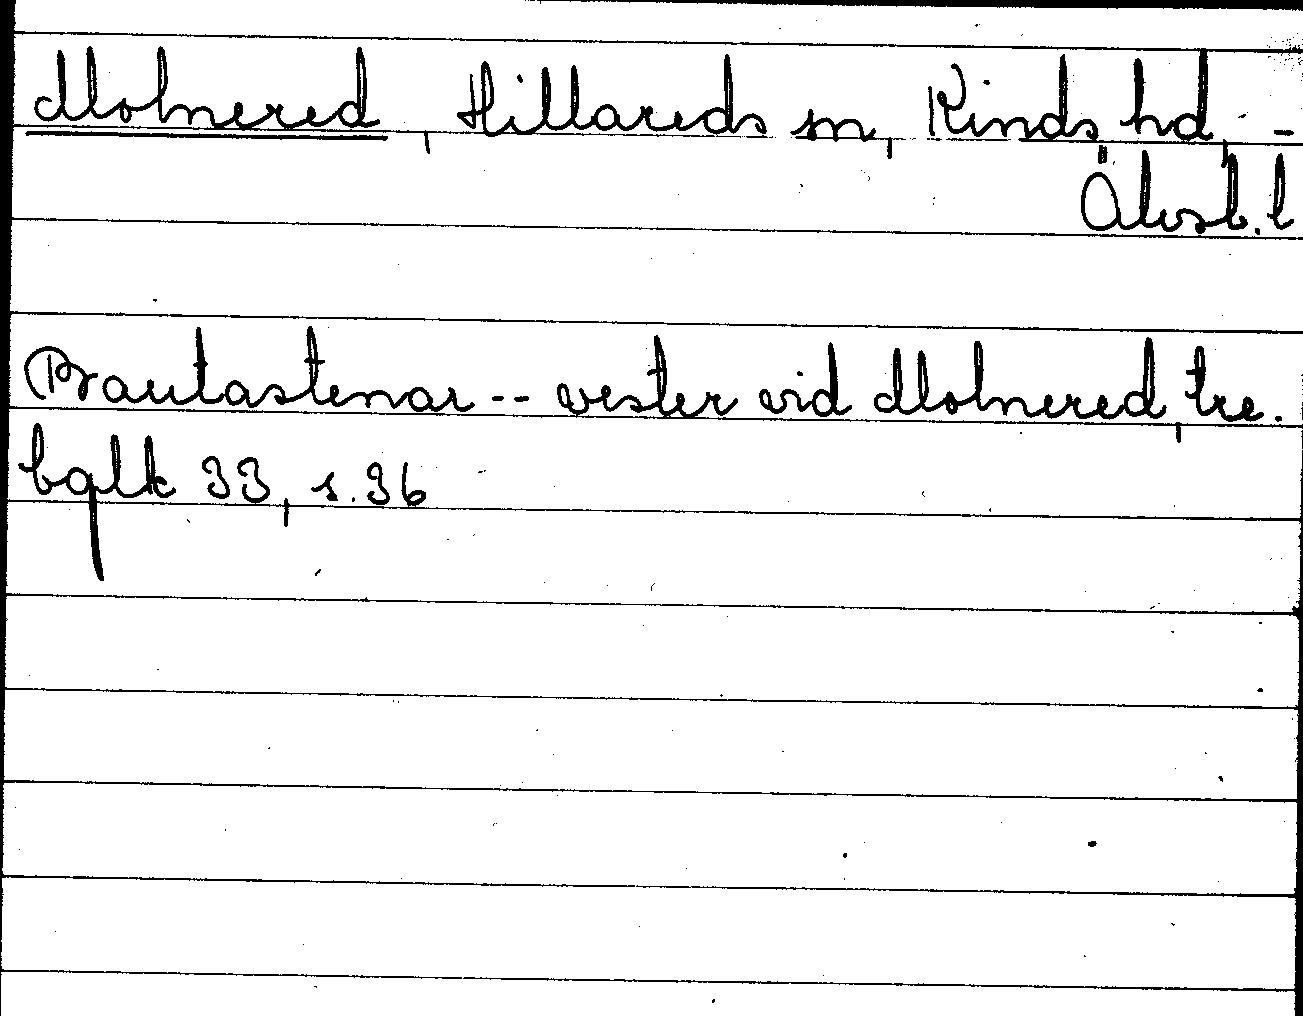 Molnered, Hillareds sn, Kinds hd, -
Älvsb. l
Bautastenar -- vester vid Molnered, tre.
bqlk 33, s. 36